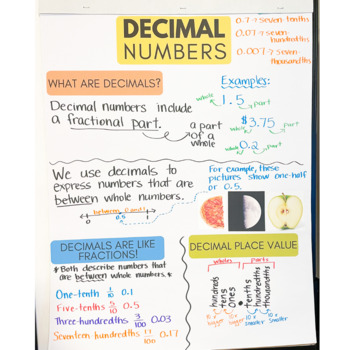 DECIMAL
NUMBERS
0.7 → seven-tenths
0.07 → seven-
hundredths
0.007 → seven-
thousandths
WHAT ARE DECIMALS?
Decimal numbers include
a fractional part.
a part
of a
whole
Examples:
whole 1.5 part
whole $3.75 part
whole 0.2 part
We use decimals to
express numbers that are
between whole numbers.
between 0 and 1
0 0.5 1
For example, these
pictures show one-half
or 0.5.
DECIMALS ARE LIKE
FRACTIONS!
*Both describe numbers that
are between whole numbers.*
One-tenth 1/10 0.1
Five-tenths 5/10 0.5
Three-hundredths 3/100 0.03
Seventeen-hundredths 17/100 0.17
DECIMAL PLACE VALUE
wholes parts
hundreds
tens
ones
.
tenths
hundredths
thousandths
10x bigger
10x bigger
10x smaller
10x smaller